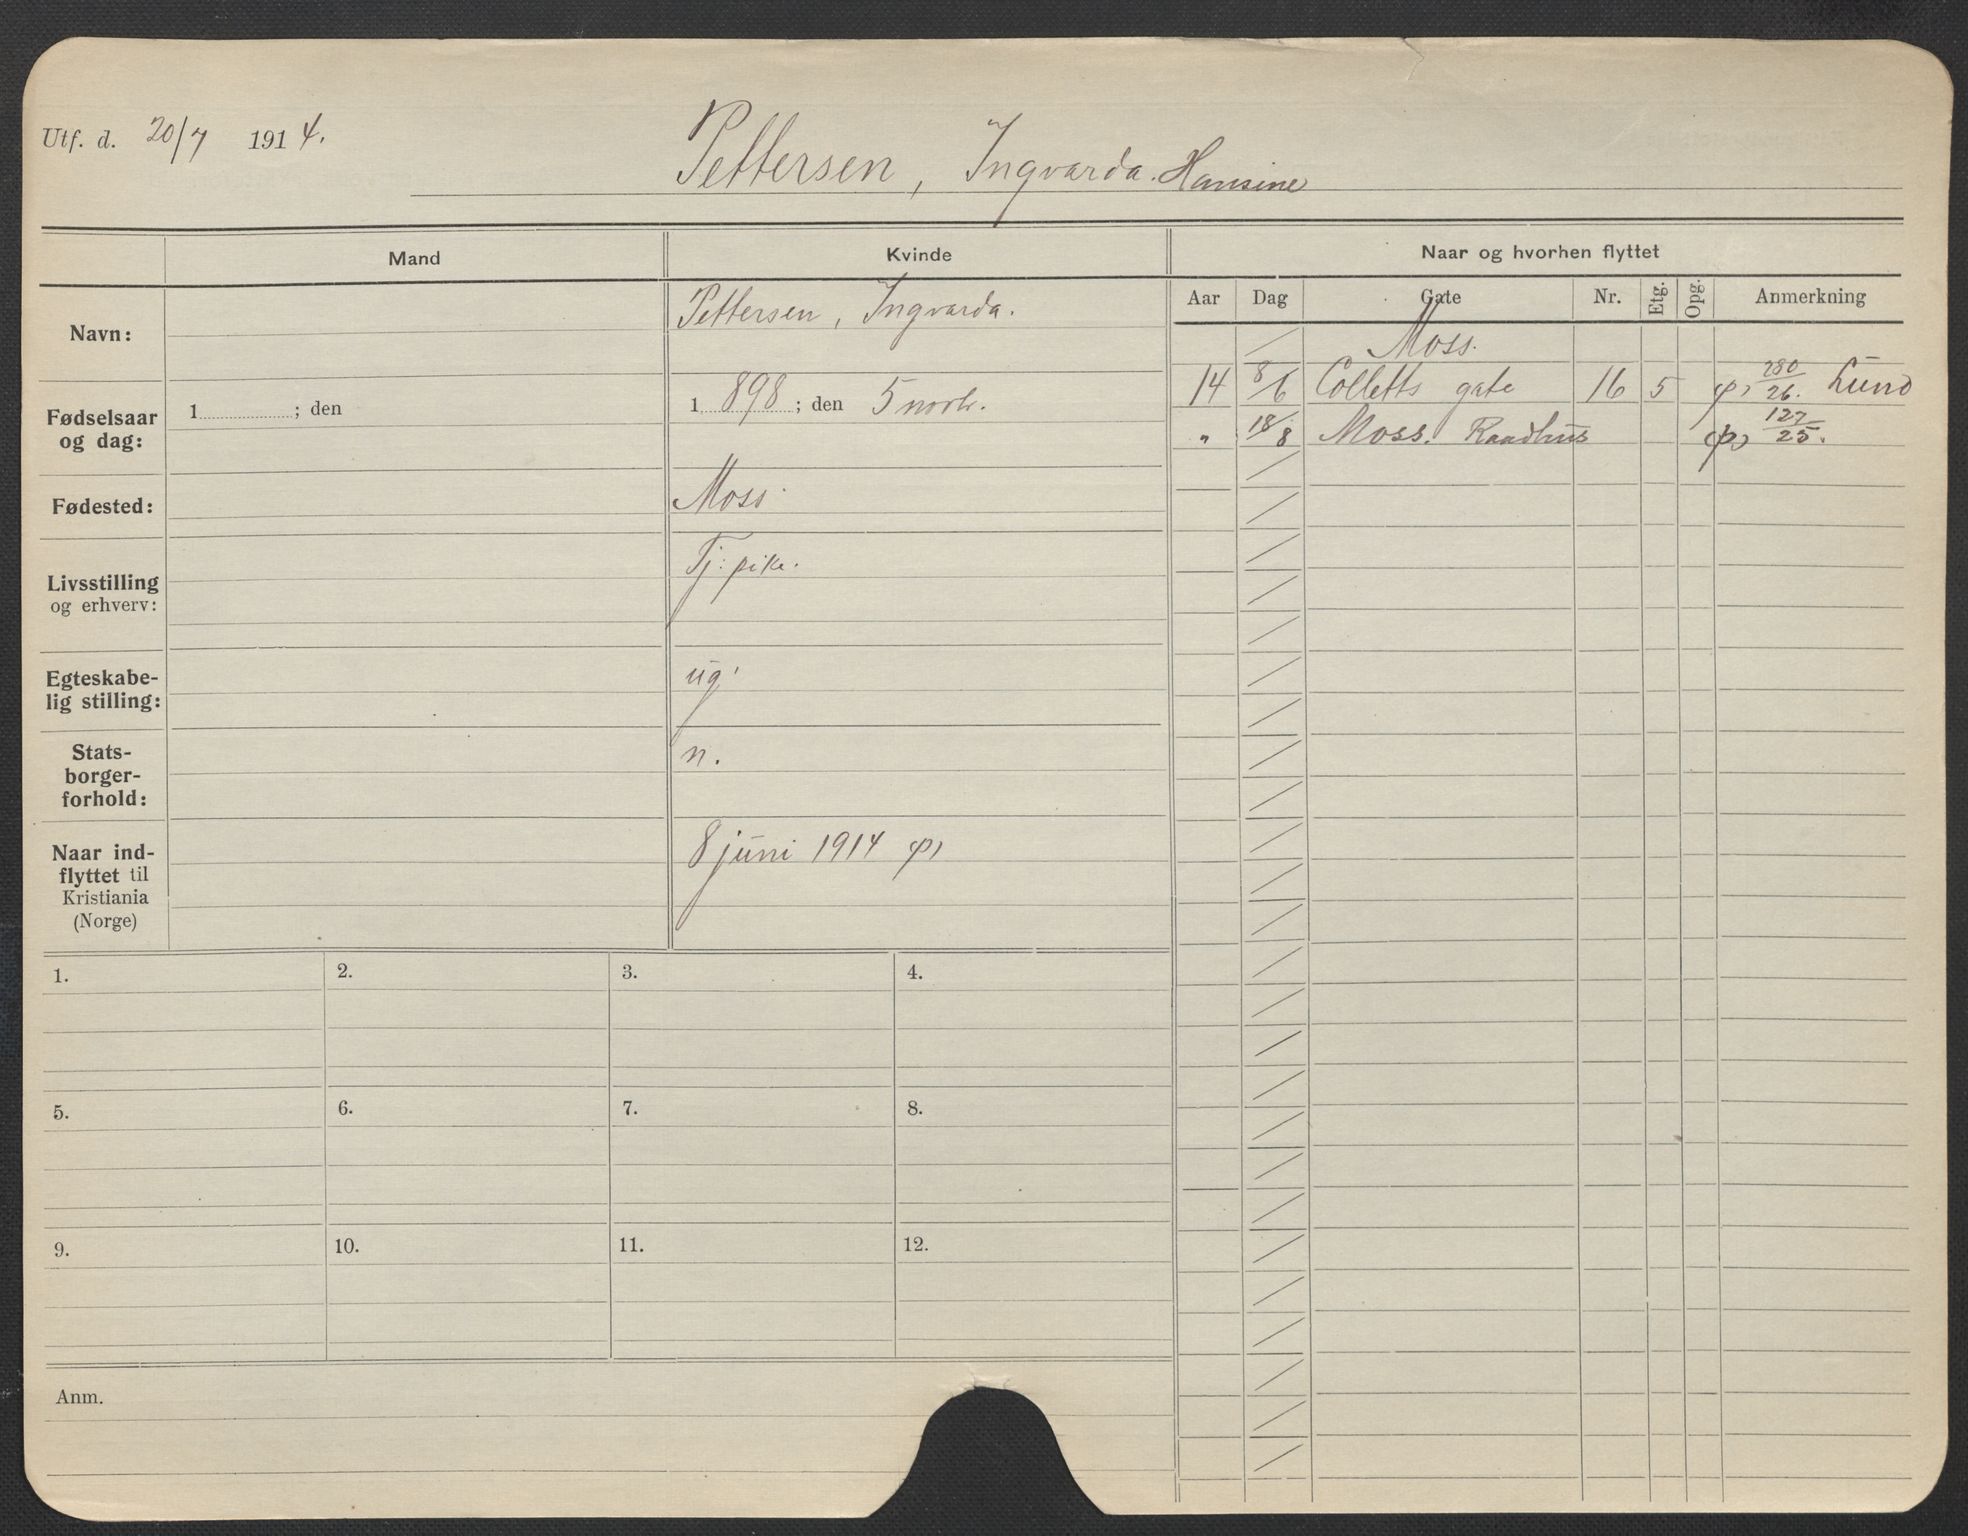 Utf. d. 20/7 1914.
Pettersen, Ingvarda. Hansine
Mand
Kvinde
Naar og hvorhen flyttet
Navn:
Pettersen, Ingvarda.
Fødselsaar
og dag:
1 ; den
1 898 ; den 5 novbr.
Fødested:
Moss
Livsstilling
og erhverv:
Tj: pike.
Egteskabe-
lig stilling:
ug.
Stats-
borger-
forhold:
n.
Naar ind-
flyttet til
Kristiania
(Norge)
8 juni 1914
Aar Dag Gate Nr. Etg. Opg. Anmerkning
Moss.
14 8/6 Colletts gate 16 5 280/26. Lund
" 18/8 Moss. Raadhus 127/25.
1. 2. 3. 4.
5. 6. 7. 8.
9. 10. 11. 12.
Anm.